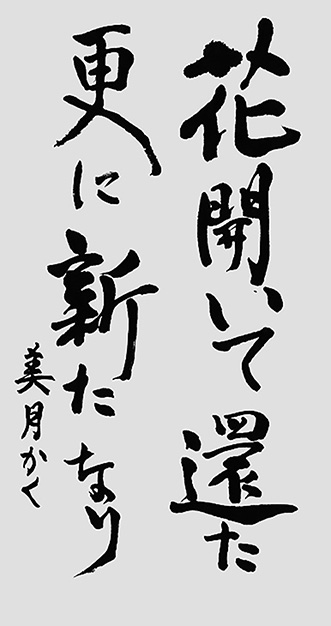 花開いて還た
更に新たなり
美月かく